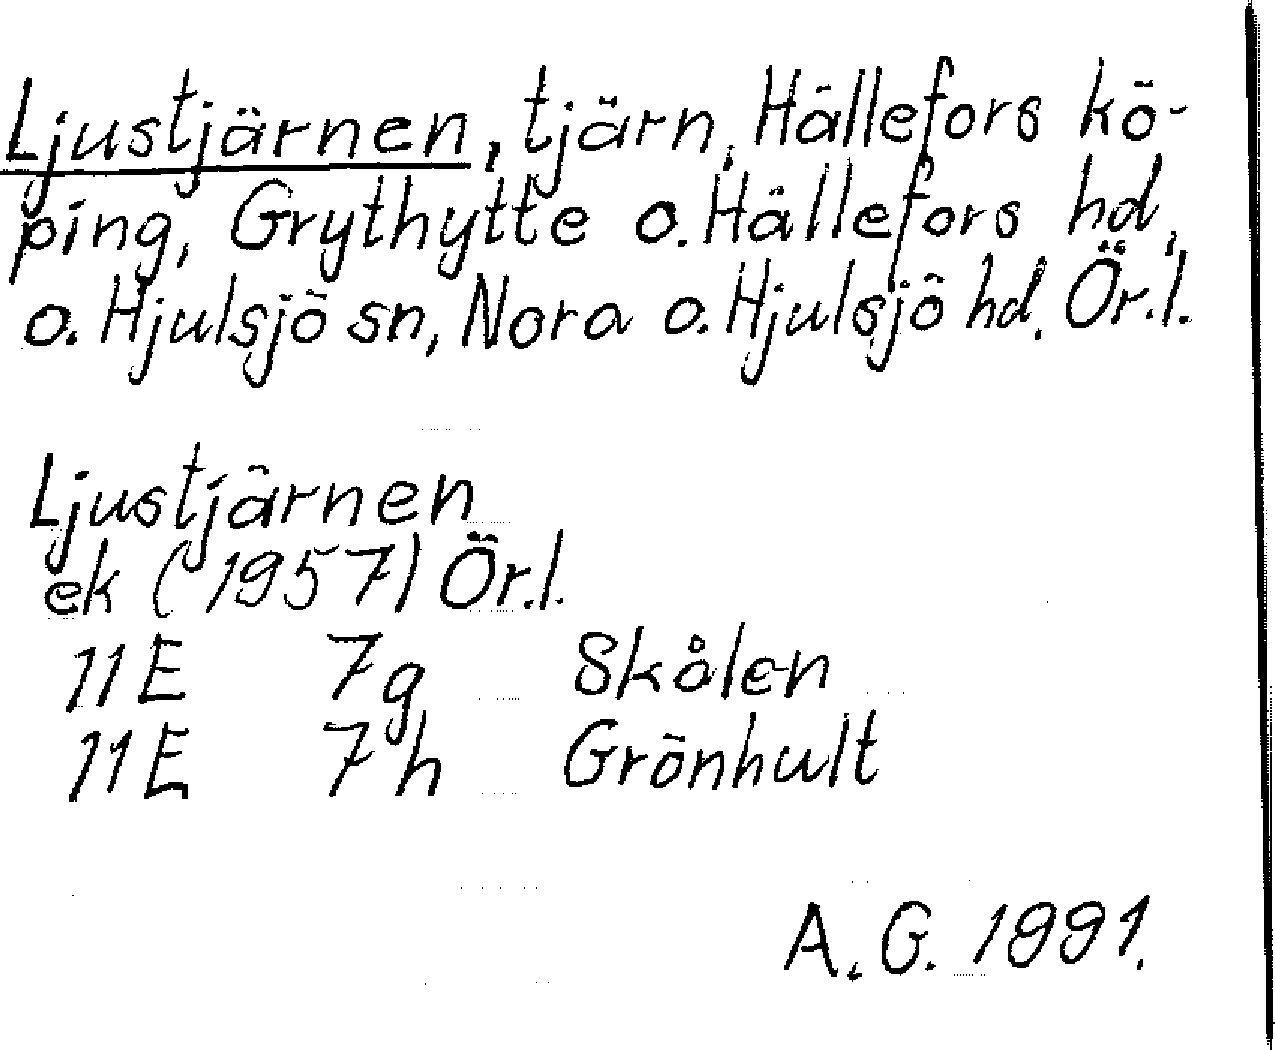 Ljustjärnen, tjärn, Hällefors kö-
ping, Grythytte o. Hällefors hd,
o. Hjulsjö sn, Nora o. Hjulsjö hd. Ör.l.
Ljustjärnen
ek (1957) Ör.l.
11E 7g Skålen
11E 7h Grönhult
A.G. 1991.